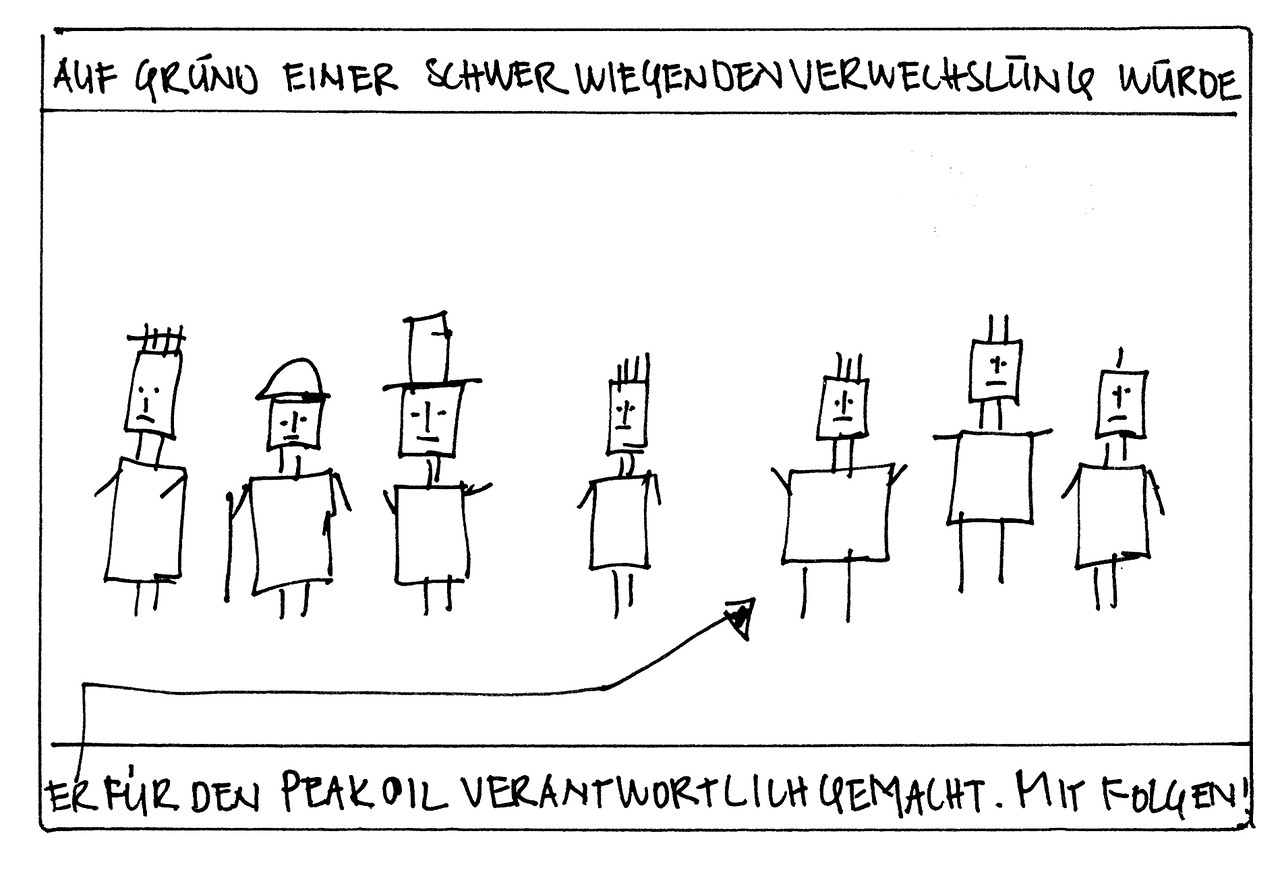 AUF GRUND EINER SCHWERWIEGENDEN VERWECHSLUNG WURDE
ER FÜR DEN PEAK OIL VERANTWORTLICH GEMACHT. MIT FOLGEN!